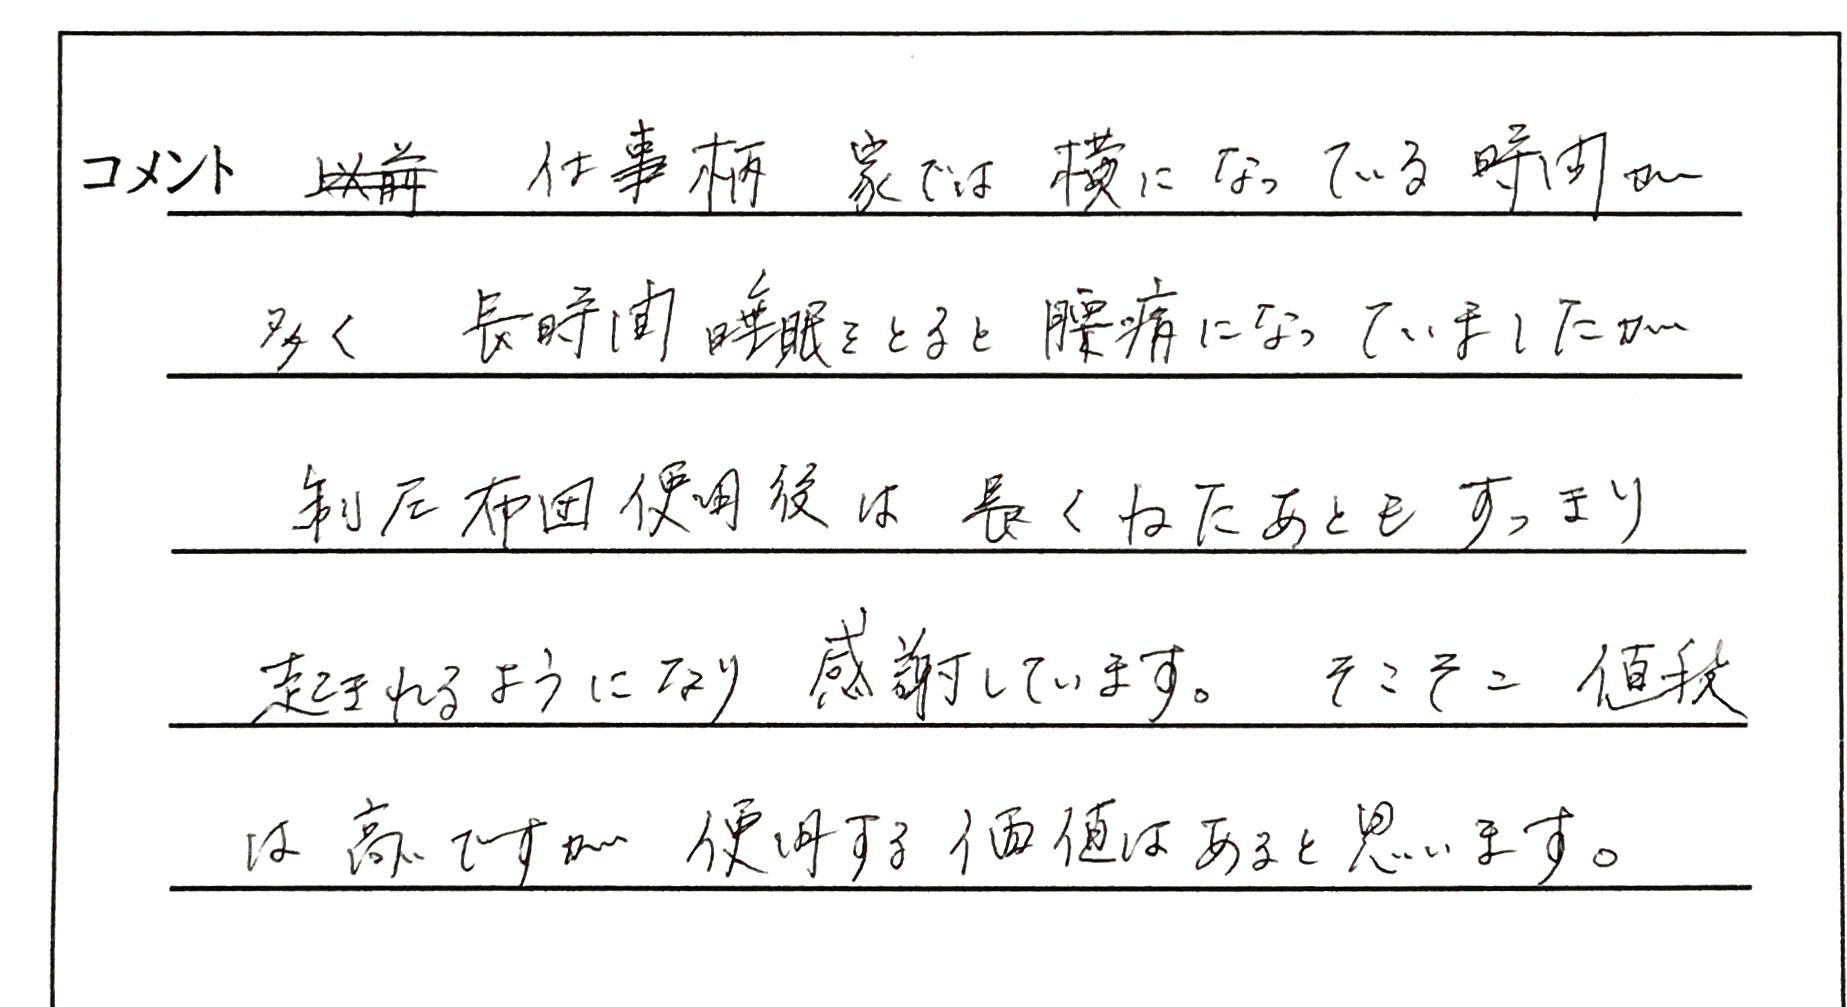 コメント 仕事柄 家では 横になっている時間が
多く 長時間睡眠をとると腰痛になっていましたが
制圧布団使用後は 長くねたあともすっきり
起きれるようになり 感謝しています。 そこそこ 値段
は高いですが 使用する価値はあると思います。